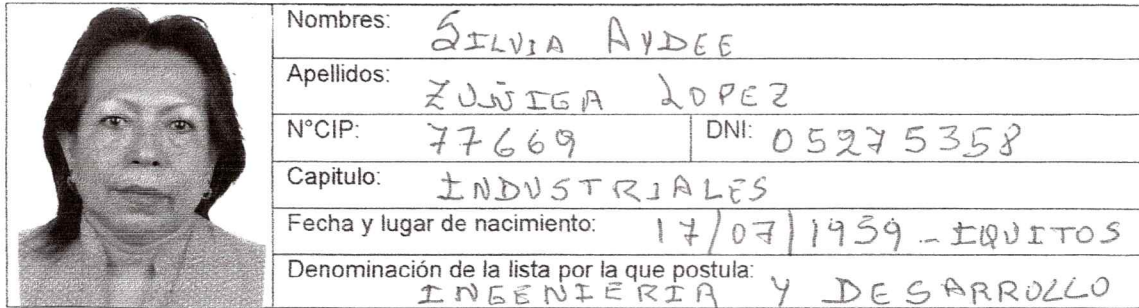 Nombres: SILVIA AYDEE
Apellidos: ZUÑIGA LOPEZ
N°CIP: 77669 DNI: 05275358
Capitulo: INDUSTRIALES
Fecha y lugar de nacimiento: 17/07/1959 - IQUITOS
Denominación de la lista por la que postula: INGENIERIA Y DESARROLLO